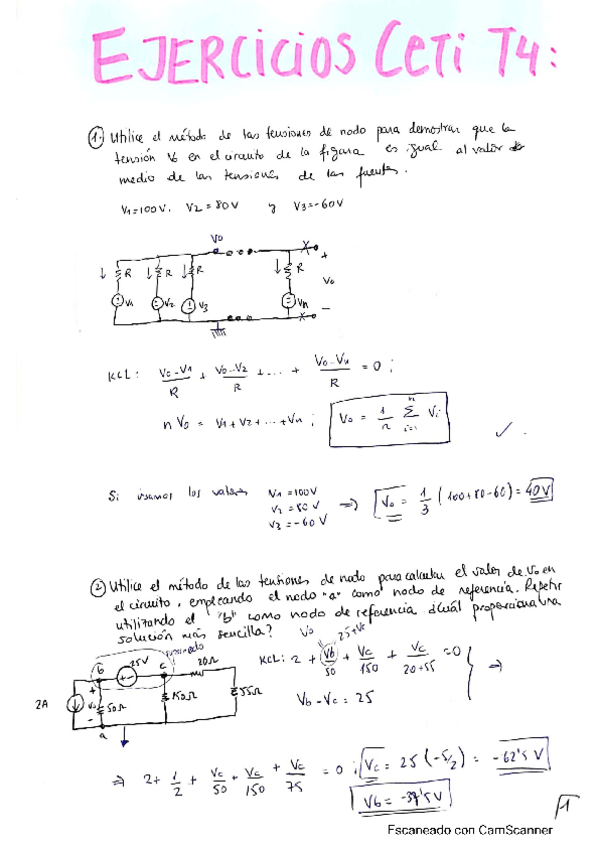 EJERCICIOS CETI T4:
1. Utilice el método de las tensiones de nodo para demostrar que la
tensión V0 en el circuito de la figura es igual al valor
medio de las tensiones de las fuentes.
V1=100V. V2=80V y V3=-60V
V0
R R R R
V1 V2 V3 Vn
+
V0
-
KCL: (V0-V1)/R + (V0-V2)/R + ... + (V0-Vn)/R = 0;
n V0 = V1+V2+...+Vn; V0 = 1/n Σ(i=1, n) Vi
Si usamos los valores V1=100V
V2=80V
V3=-60V
=> V0 = 1/3 (100+80-60) = 40V
2 Utilice el método de las tensiones de nodo para calcular el valor de V0 en
el circuito, empleando el nodo "a" como nodo de referencia. Repetir
utilizando el "b" como nodo de referencia ¿Cuál proporciona una
solución más sencilla?
V0 25+Vc
b 25V c 20Ω
+ -
2A + V0 - 50Ω 150Ω 55Ω
a
KCL: 2 + Vb/50 + Vc/150 + Vc/(20+55) = 0 =>
Vb-Vc = 25
=> 2 + 1/2 + Vc/50 + Vc/150 + Vc/75 = 0; Vc = 25(-5/2) = -62'5 V
Vb = -37'5V
Escaneado con CamScanner